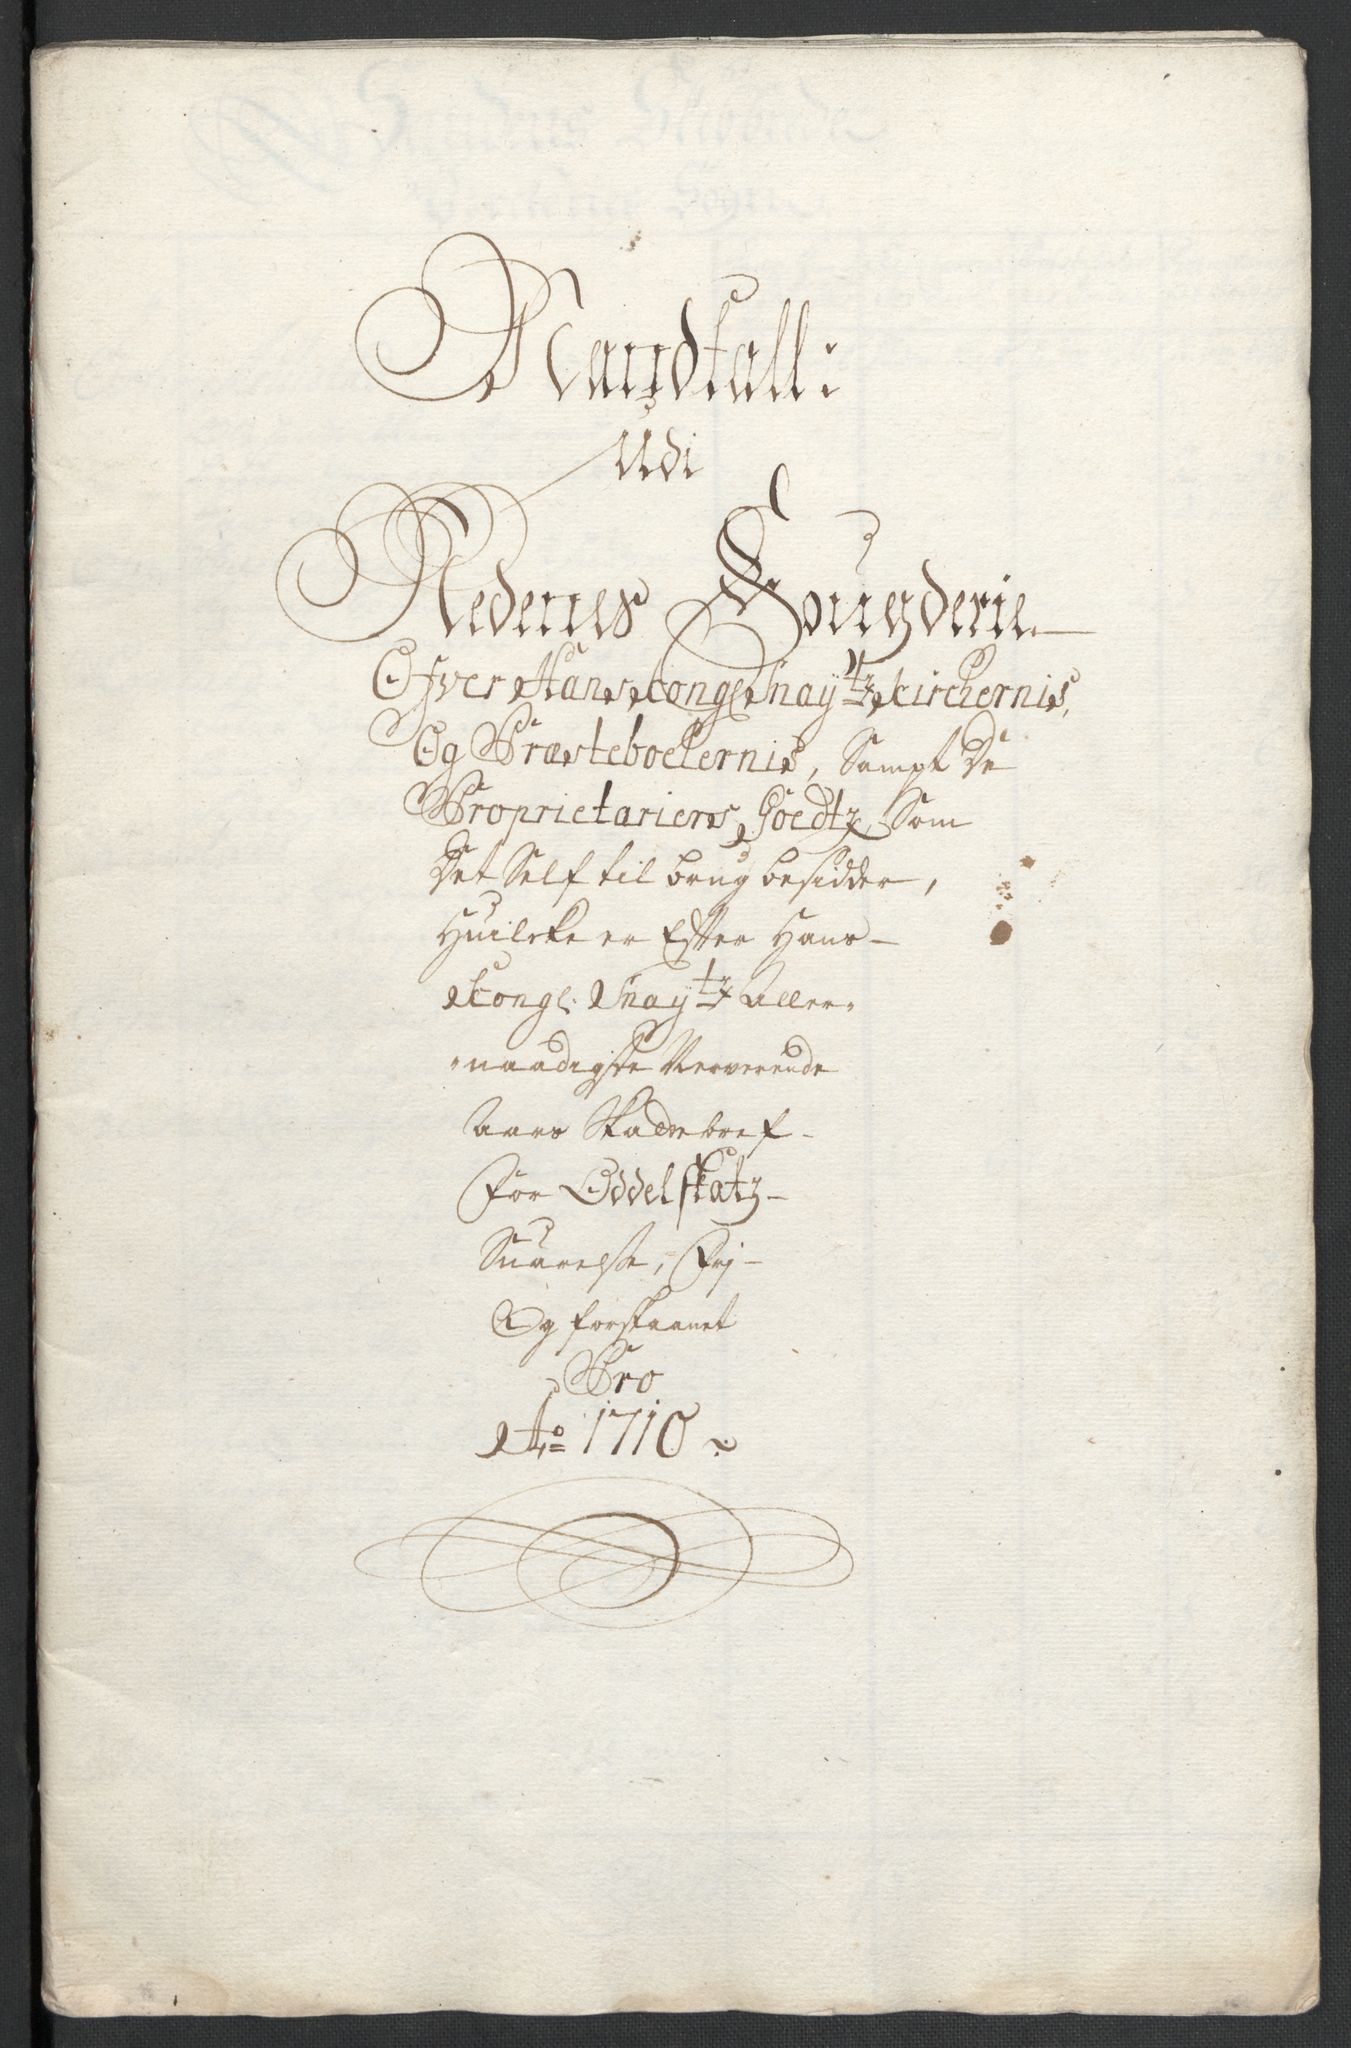 Mandtall:
Udi
Nedenes Fougderie
Ofver Hans Kongl: Mayttz Kirchernis,
Og Præsteboelernis, Sampt De
Proprietariers Goedtz, Som
Det Self til brug besidder,
Huilcke er Efter Hans
Kongl: Mayttz Aller-
naadigste Nerverende
Aars Skattebref
For Oddelskatz
Suarelse, Frj
Og forskaanet
Pro
Ao 1710